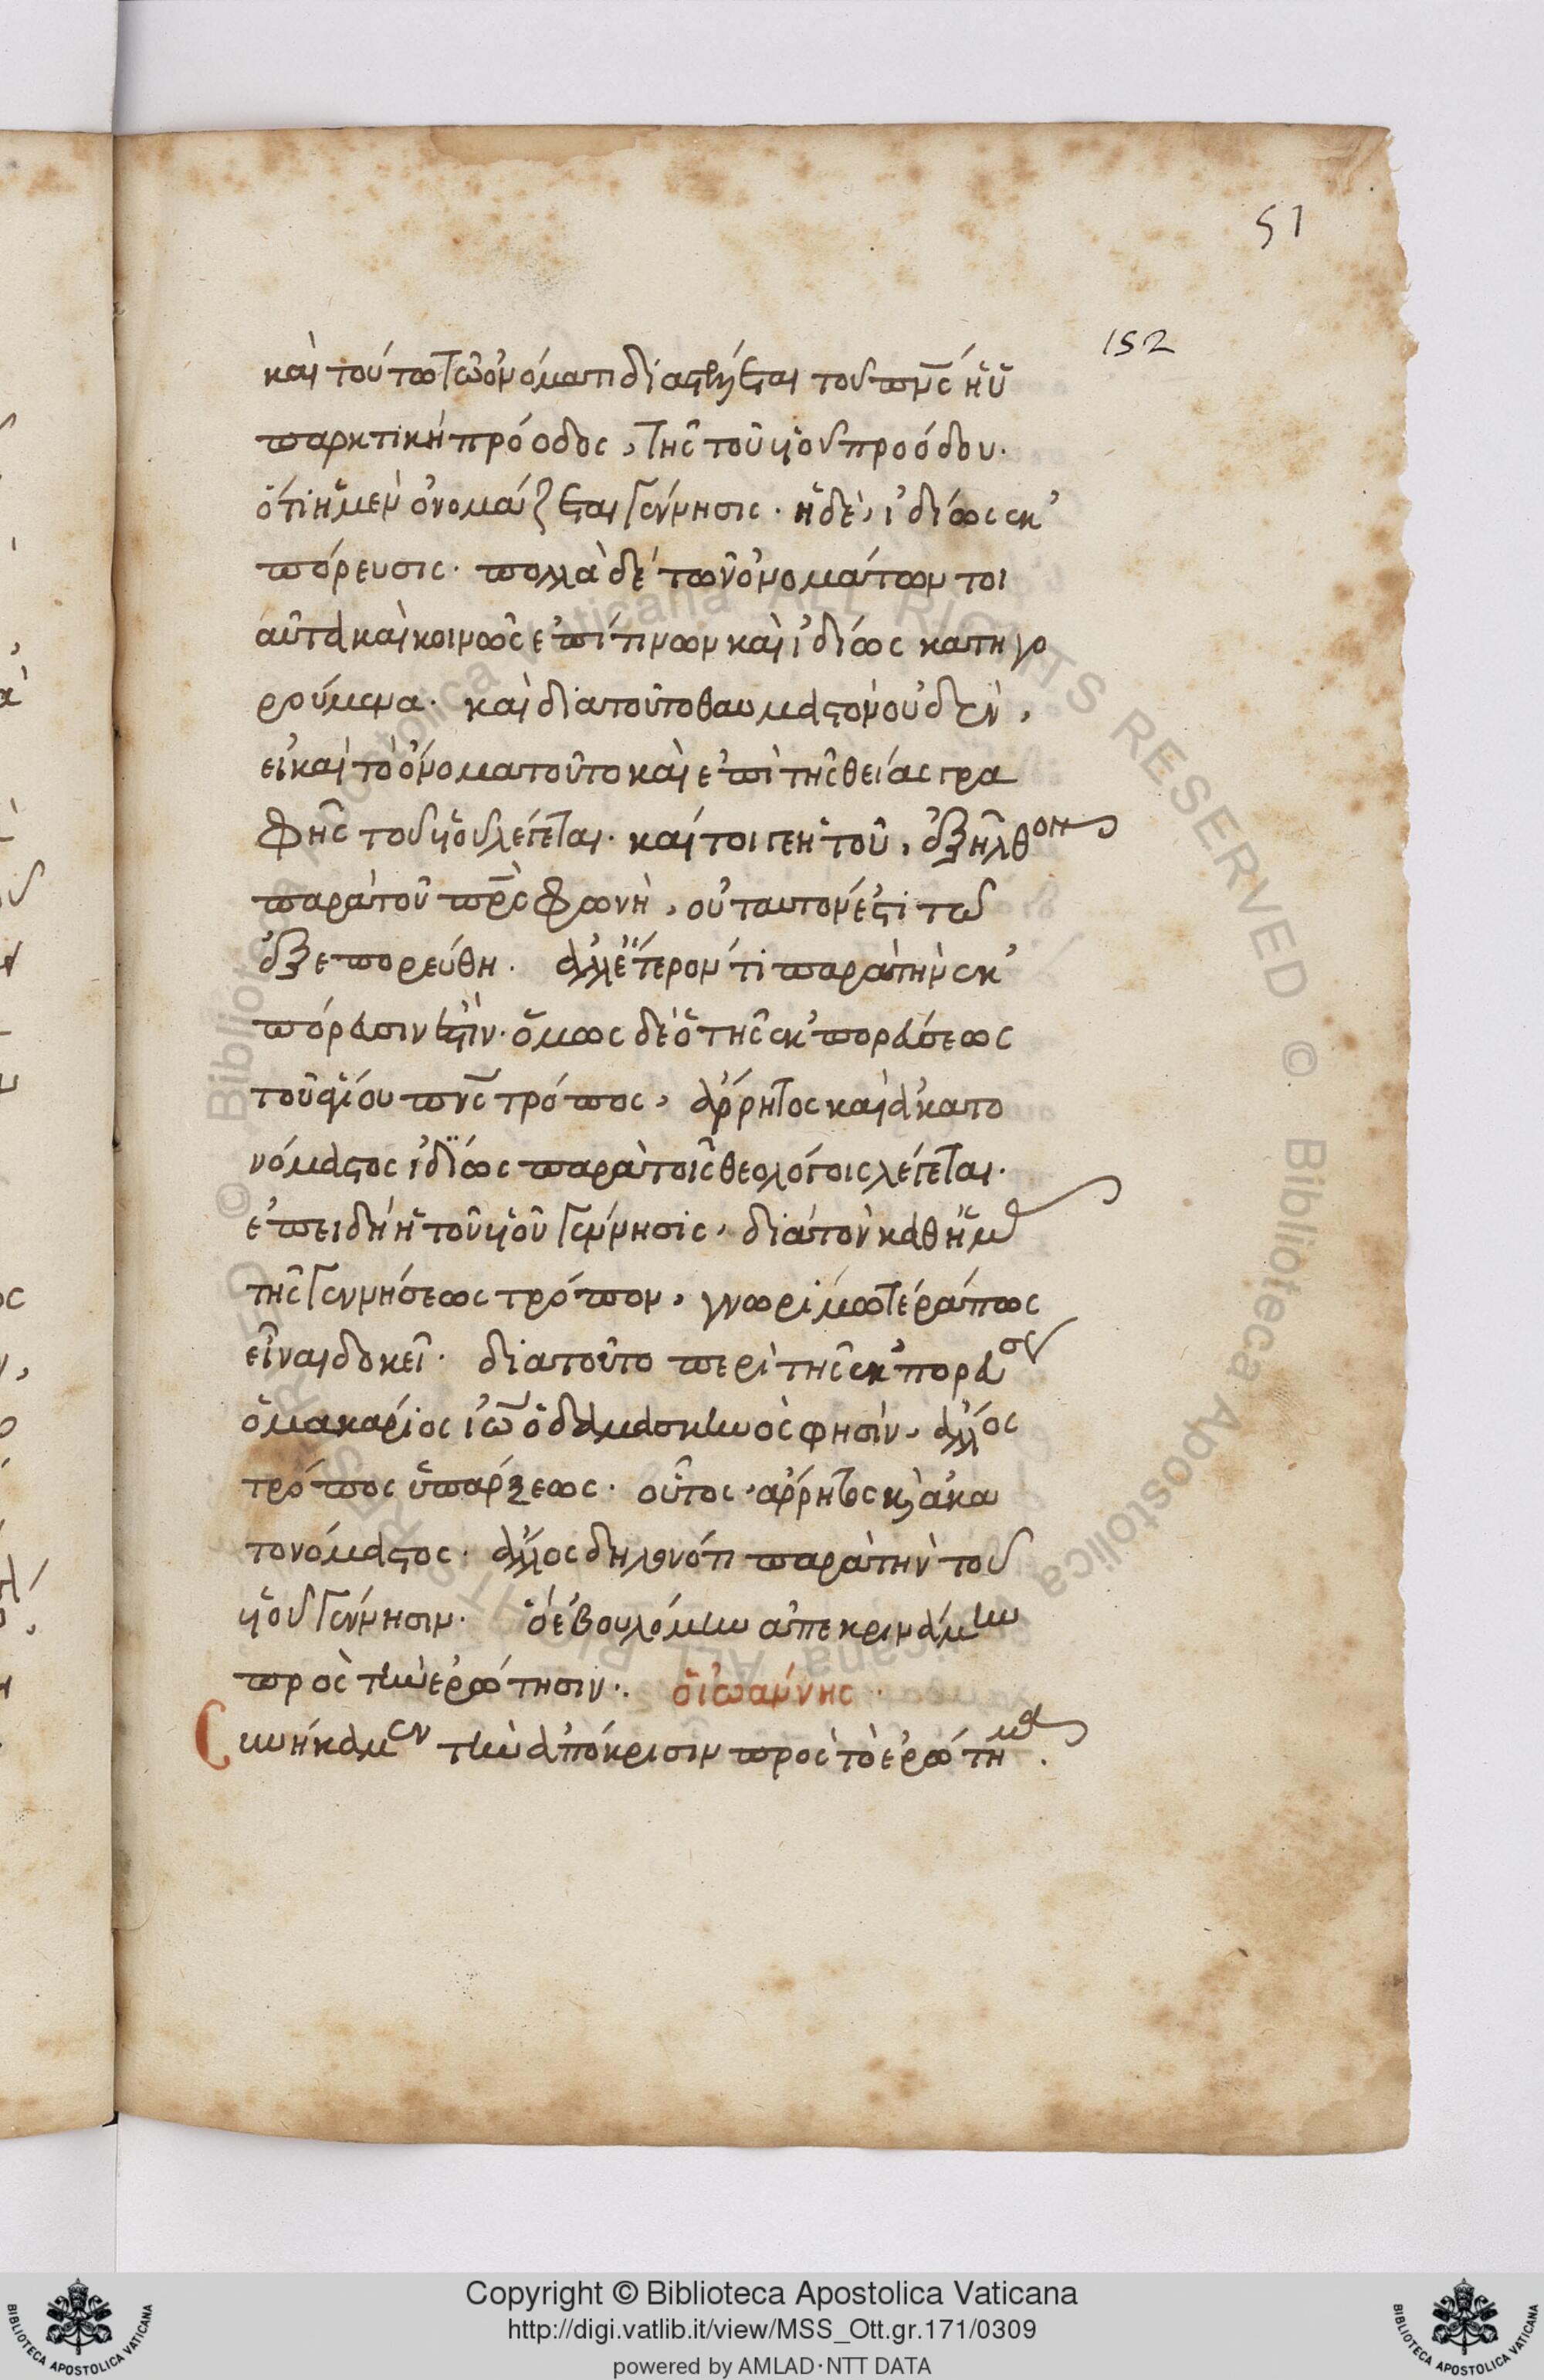 51
152
καὶ τούτω τῶ ὀνόματι διαστέλλεται τοῦ πνς ἡ ὑ
παρκτικὴ πρόοδος, τῆς τοῦ υἱοῦ προόδου.
ὅτι ἡ μὲν ὀνομάζεται γέννησις. ἡ δὲ, ἰδίως ἐκ
πόρευσις. πολλὰ δὲ τῶν ὀνομάτων τοι
αῦτα καὶ κοινῶς ἐπί τινων καὶ ἰδίως κατηγο
ρούμενα. καὶ διατοῦτο θαυμαστὸν οὐδὲν,
εἰ καὶ τὸ ὄνομα τοῦτο καὶ ἐπὶ τῆς θείας γρα
φῆς τοῦ υἱοῦ λέγεται. καίτοι γε ἡ τοῦ, ἐξῆλθον
παρὰ τοῦ πρς φωνὴ, οὐ ταυτόν ἐστι τῶ
ἐξεπορεύθη. ἀλλ' ἕτερόν τι παρὰ τὴν ἐκ
πόρευσιν ἐστὶν. ὅμως δὲ ὁ τῆς ἐκπορεύσεως
τοῦ ἁγίου πνς τρόπος, ἄρρητος καὶ ἀκατο
νόμαστος ἰδίως παρὰ τοῖς θεολόγοις λέγεται.
ἐπειδὴ ἡ τοῦ υἱοῦ γέννησις, διὰ τὸν καθ' ἡμᾶς
τῆς γεννήσεως τρόπον, γνωριμωτέρα πως
εἶναι δοκεῖ. διατοῦτο περὶ τῆς ἐκπορεύσεως
ὁ μακάριος ἰω ὁ δαμασκηνὸς φησὶν, ἄλλος
τρόπος ὑπάρξεως. οὗτος, ἄρρητος κ ἀκα
τονόμαστος. ἄλλος δηλονότι παρὰ τὴν τοῦ
υἱοῦ γέννησιν. ὃ ἐβουλόμην ἀπεκρινάμην
πρὸς τὴν ἐρώτησιν. ὁ ἰωάννης.
συνήκαμεν τὴν ἀπόκρισιν πρὸς τὸ ἐρώτημα.
© Biblioteca Apostolica Vaticana ALL RIGHTS RESERVED
Copyright © Biblioteca Apostolica Vaticana
http://digi.vatlib.it/view/MSS_Ott.gr.171/0309
powered by AMLAD·NTT DATA
BIBLIOTECA APOSTOLICA VATICANA
BIBLIOTECA APOSTOLICA VATICANA